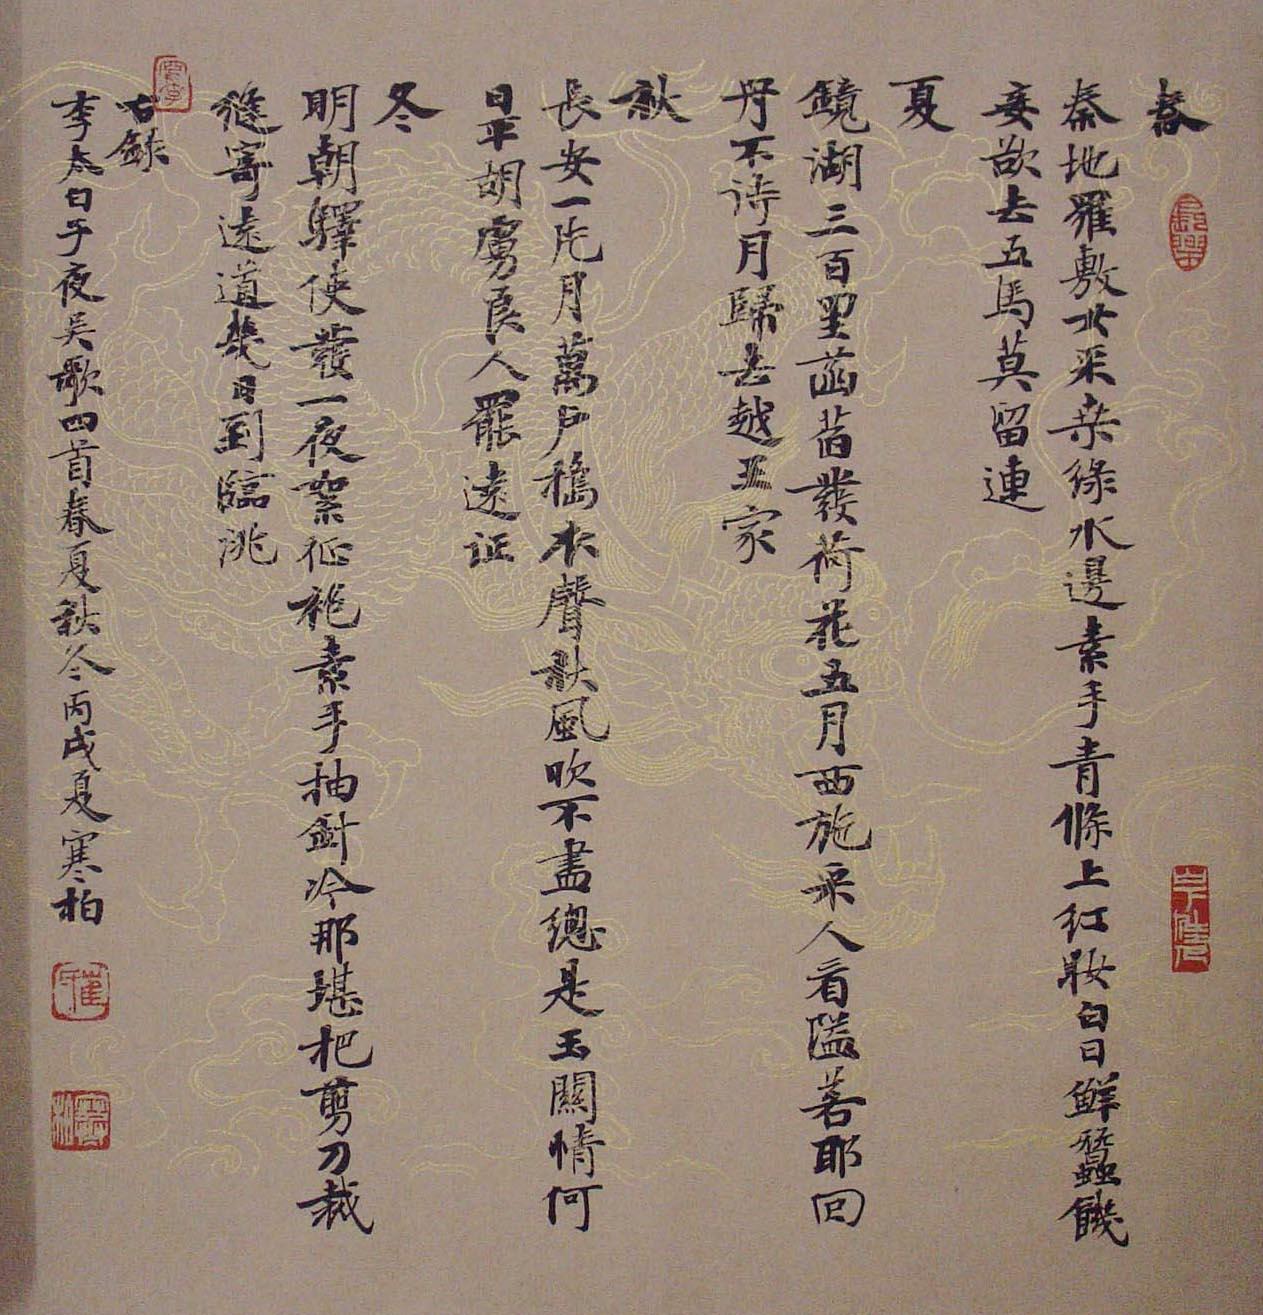 春
秦地羅敷女采桑綠水邊素手青條上紅妝白日鮮蠶饑
妾欲去五馬莫留連
夏
鏡湖三百里菡萏發荷花五月西施采人看隘若耶回
舟不待月歸去越王家
秋
長安一片月萬戶搗衣聲秋風吹不盡總是玉關情何
日平胡虜良人罷遠征
冬
明朝驛使發一夜絮征袍素手抽針冷那堪把剪刀裁
縫寄遠道幾日到臨洮
右錄
李太白子夜吳歌四首春夏秋冬丙戌夏寒柏
長樂